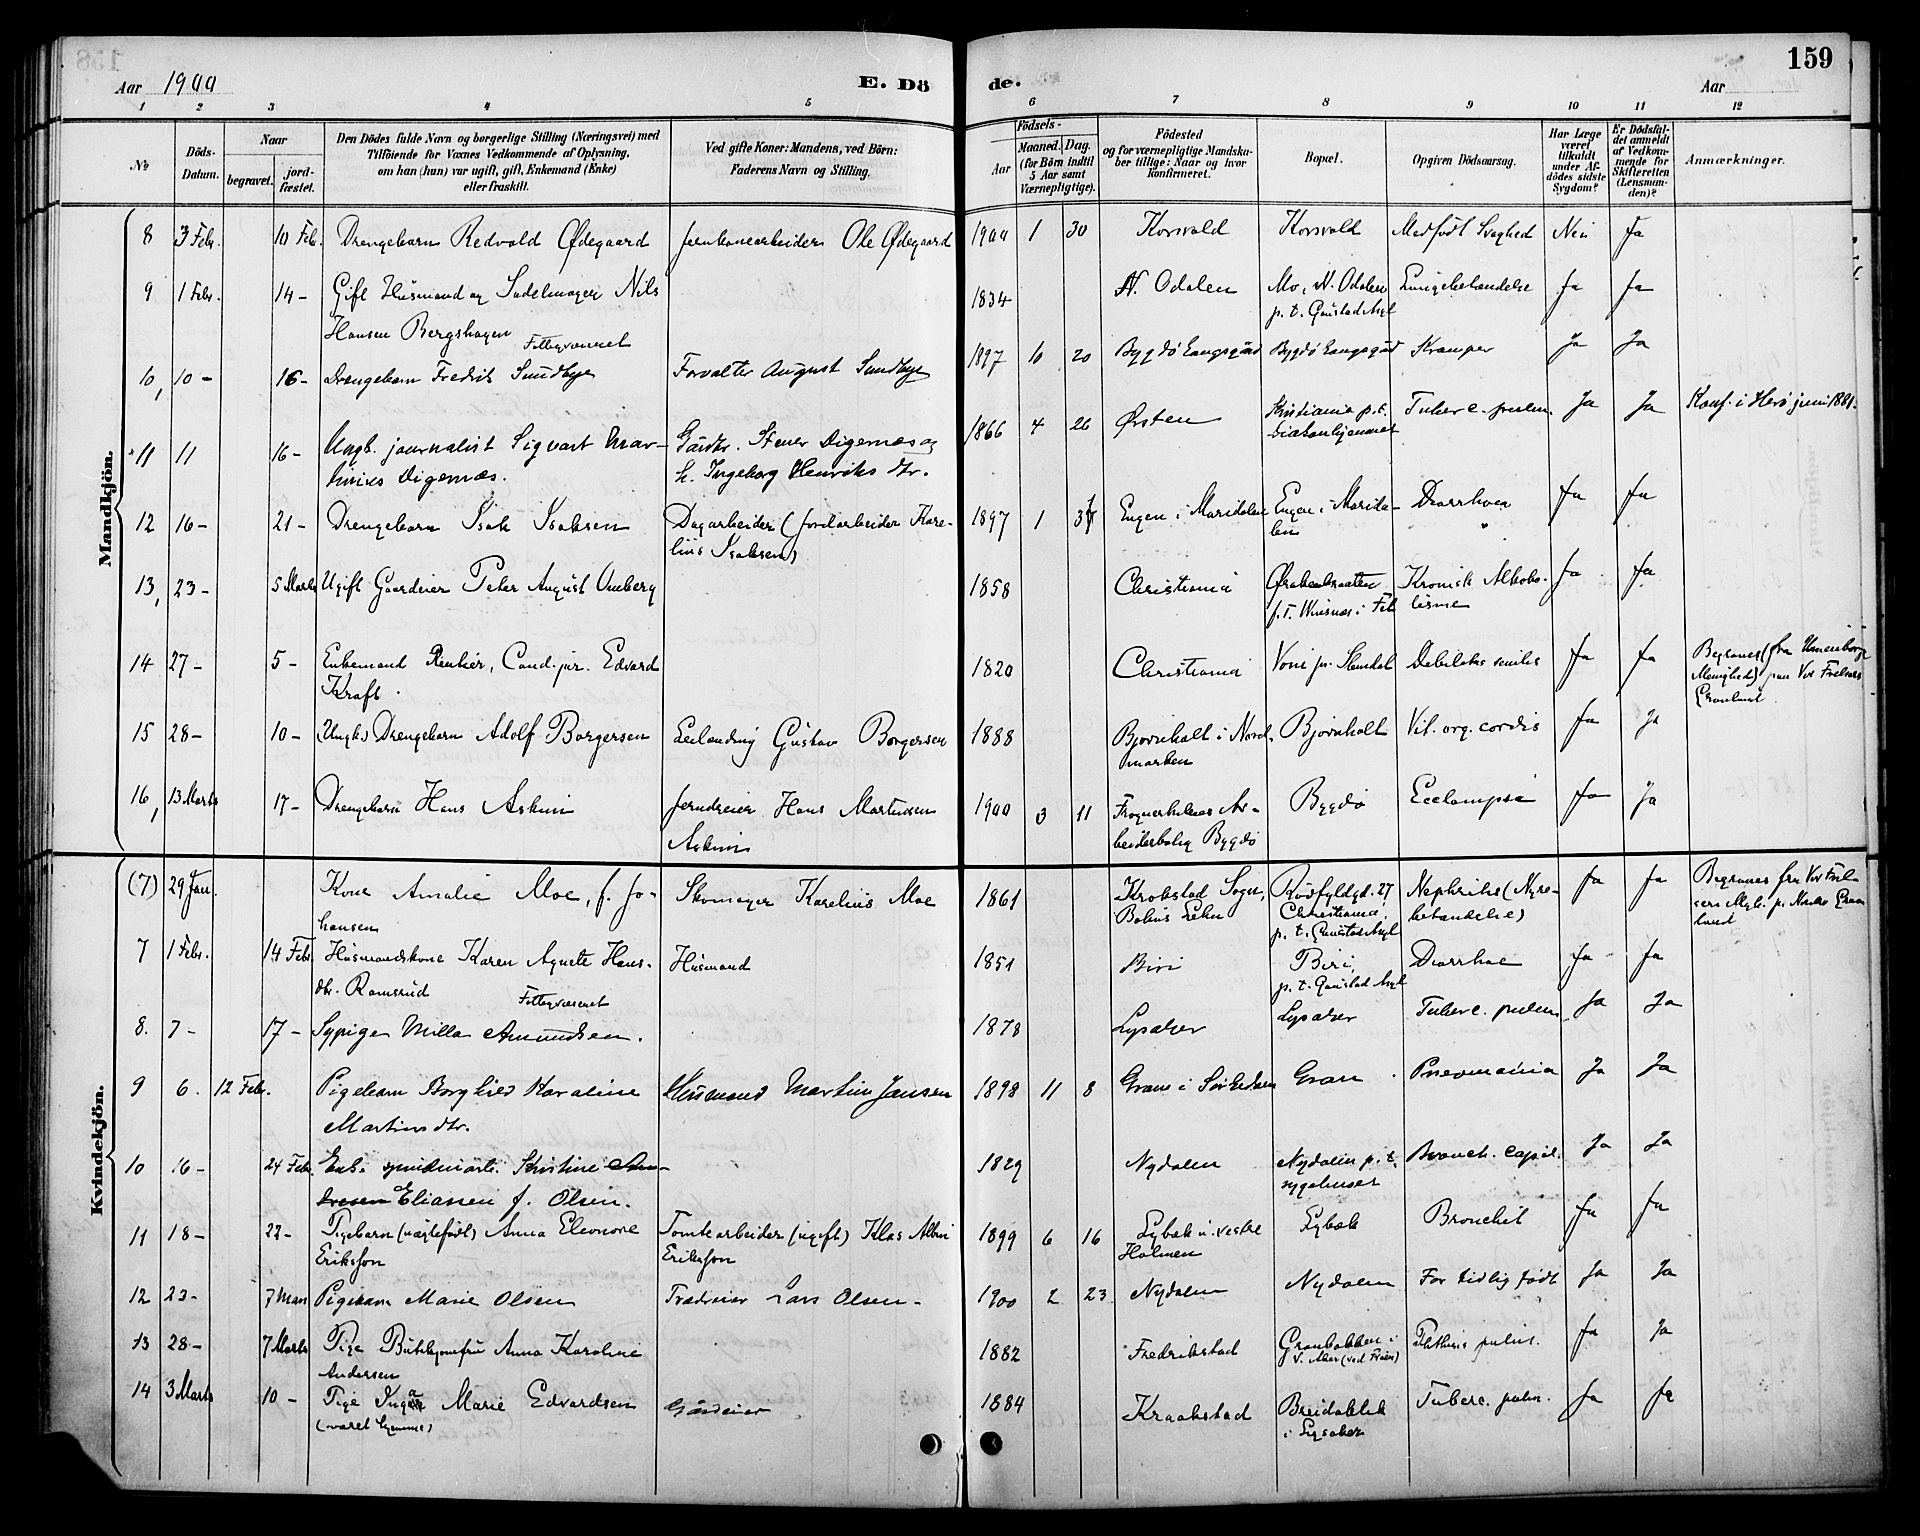 Aar 1900 E. Dö
de. 159
Aar
1 2 3 4 5 6 7 8 9 10 11 12
№ Döds-Datum. Naar begravet. jordfæstet. Den Dödes fulde Navn og borgerlige Stilling (Næringsvei) med Tilföiende for Voxnes Vedkommende af Oplysning, om han (hun) var ugift, gift, Enkemand (Enke) eller fraskilt. Ved gifte Koner: Mandens, ved Börn: Faderens Navn og Stilling. Födsels- Aar Maaned. Dag. (for Börn indtil 5 Aar samt Værnepligtige). Födested og for værnepligtige Mandskaber tillige: Naar og hvor konfirmeret. Bopæl. Opgiven Dödsaarsag. Har Læge været tilkaldt under Afdödes sidste Sygdom? Er Dödsfaldet anmeldt af Vedkommende for Skifteretten (Lensmanden)? Anmærkninger.
Mandkjön.
8 3 Febr. 10 Feb. Drengebarn Redvald Ødegaard Jernbanearbeider Ole Ødegaard 1900 1 30 Korsvald Korsvald Medfödt Svaghed Nei Ja
9 1 Febr. 14 - Gift Husmand og Sadelmager Nils 1834 N. Odalen Mo, N. Odalen Lungebetændelse Ja Ja
Hansen Bergshagen p. t. Gaustad Asyl
Fattigvæsenet
10, 10 - 16 - Drengebarn Fredrik Sundbye Forvalter August Sundbye 1897 10 20 Bygdö Kongsgård Bygdö Kongsgård Kramper Ja Ja
11 11 16 - Ungk. journalist Sigvart Mar- Gårdbr. Stener Digernæs og 1866 4 26 Ørsten Kristiania p. t. Tuberc. pulm. Ja Ja Konf. i Herö juni 1881.
tinius Digernæs. h. Ingeborg Henriks dtr. Diakonhjemmet
12 16 - 21 - Drengebarn Isak Isaksen Dagarbeider (Jordarbeider Kare- 1897 1 Engen i Maridalen Engen i Marida- Diarrhoea Ja Ja
lius Isaksen) len
13, 23 - 5 Marts Ugift Gaardeier Peter August Omberg 1858 Christiania Kronisk Alkoho- Ja Ja
p. t. lisme
14 27 - 5 - Enkemand Rentier, Cand. jur. Edvard 1820 Christiania Debilitas senilis Ja Ja Begraves (fra
Kraft. Menighed) paa Vor Frelsers
Gravlund
15 28 - 10 - (Ungk.) Drengebarn Adolf Borgersen Leilænding Gustav Borgersen 1888 Bjornholt i Nord- Bjornholt Vit. org. cordis Ja Ja
marken
16, 13 Marts 17 - Drengebarn Hans Askim Jerndreier Hans Martinsen 1900 3 11 Frognerkilens Ar- Bygdö Ecclampsi Ja Ja
Askim beiderbolig Bygdö
Kvindekjön.
(7) 29 Jan. Kone Amalie Moe, f. Jo- Skomager Karelius Moe 1861 Krokstad Sogn, Rosfyldgd. 27 Nephritis (Nyre- Ja Ja Begraves fra Vor Frel-
hansen Bohus Lehn Christiania, betændelse) sers Mgh. p. Nordre Grav-
p. t. Gaustad Asyl lund
7 1 Febr. 14 Febr. Husmandskone Karen Agnete Hans- Husmand 1851 Biri Biri, Diarrhoe Ja Ja
dtr. Ramsrud p. t. Gaustad Asyl
Fattigvæsenet
8. 7 - 17 - Sypige Milla Amundsen. 1878 Lysaker Lysaker Tuberc. pulm. Ja Ja
9 6. 12 Febr. Pigebarn Borghild Karoline Husmand Martin Jansen 1898 11 8 Gran i Sörkedalen Gran Pneumonia Ja Ja
Martinsdtr.
10 16 - 24 Feb. Enke Kristine An- 1829 Nydalen Nydalen p. t. Bronch. capil. Ja Ja
dresen Eliassen f. Olsen. sygehuset
11 18 - 22 - Pigebarn (uægtefödt) Anna Eleonore Tomtearbeider (ugift) Klas Albin 1899 6 16 Lybæk u. vestre Lybæk Bronchit Ja Ja
Eriksson Eriksson Holmen
12 23 - 7 Mars Pigebarn Marie Olsen Trædreier Lars Olsen - 1900 2 23 Nydalen Nydalen For tidlig födt Ja Ja
13 28 - 7 Marts Pige Butikjomfru Anna Karoline 1882 Fredrikstad Granbakken i Phthisis pulm. Ja Ja
Andersen V. Aker (ved Frøen)
14 3 Marts 10 - Pige Inga Marie Edvardsen Gårdeier 1884 Kraakstad Breidablik Tuberc. pulm. Ja Ja
(været hjemme) i Lysaker